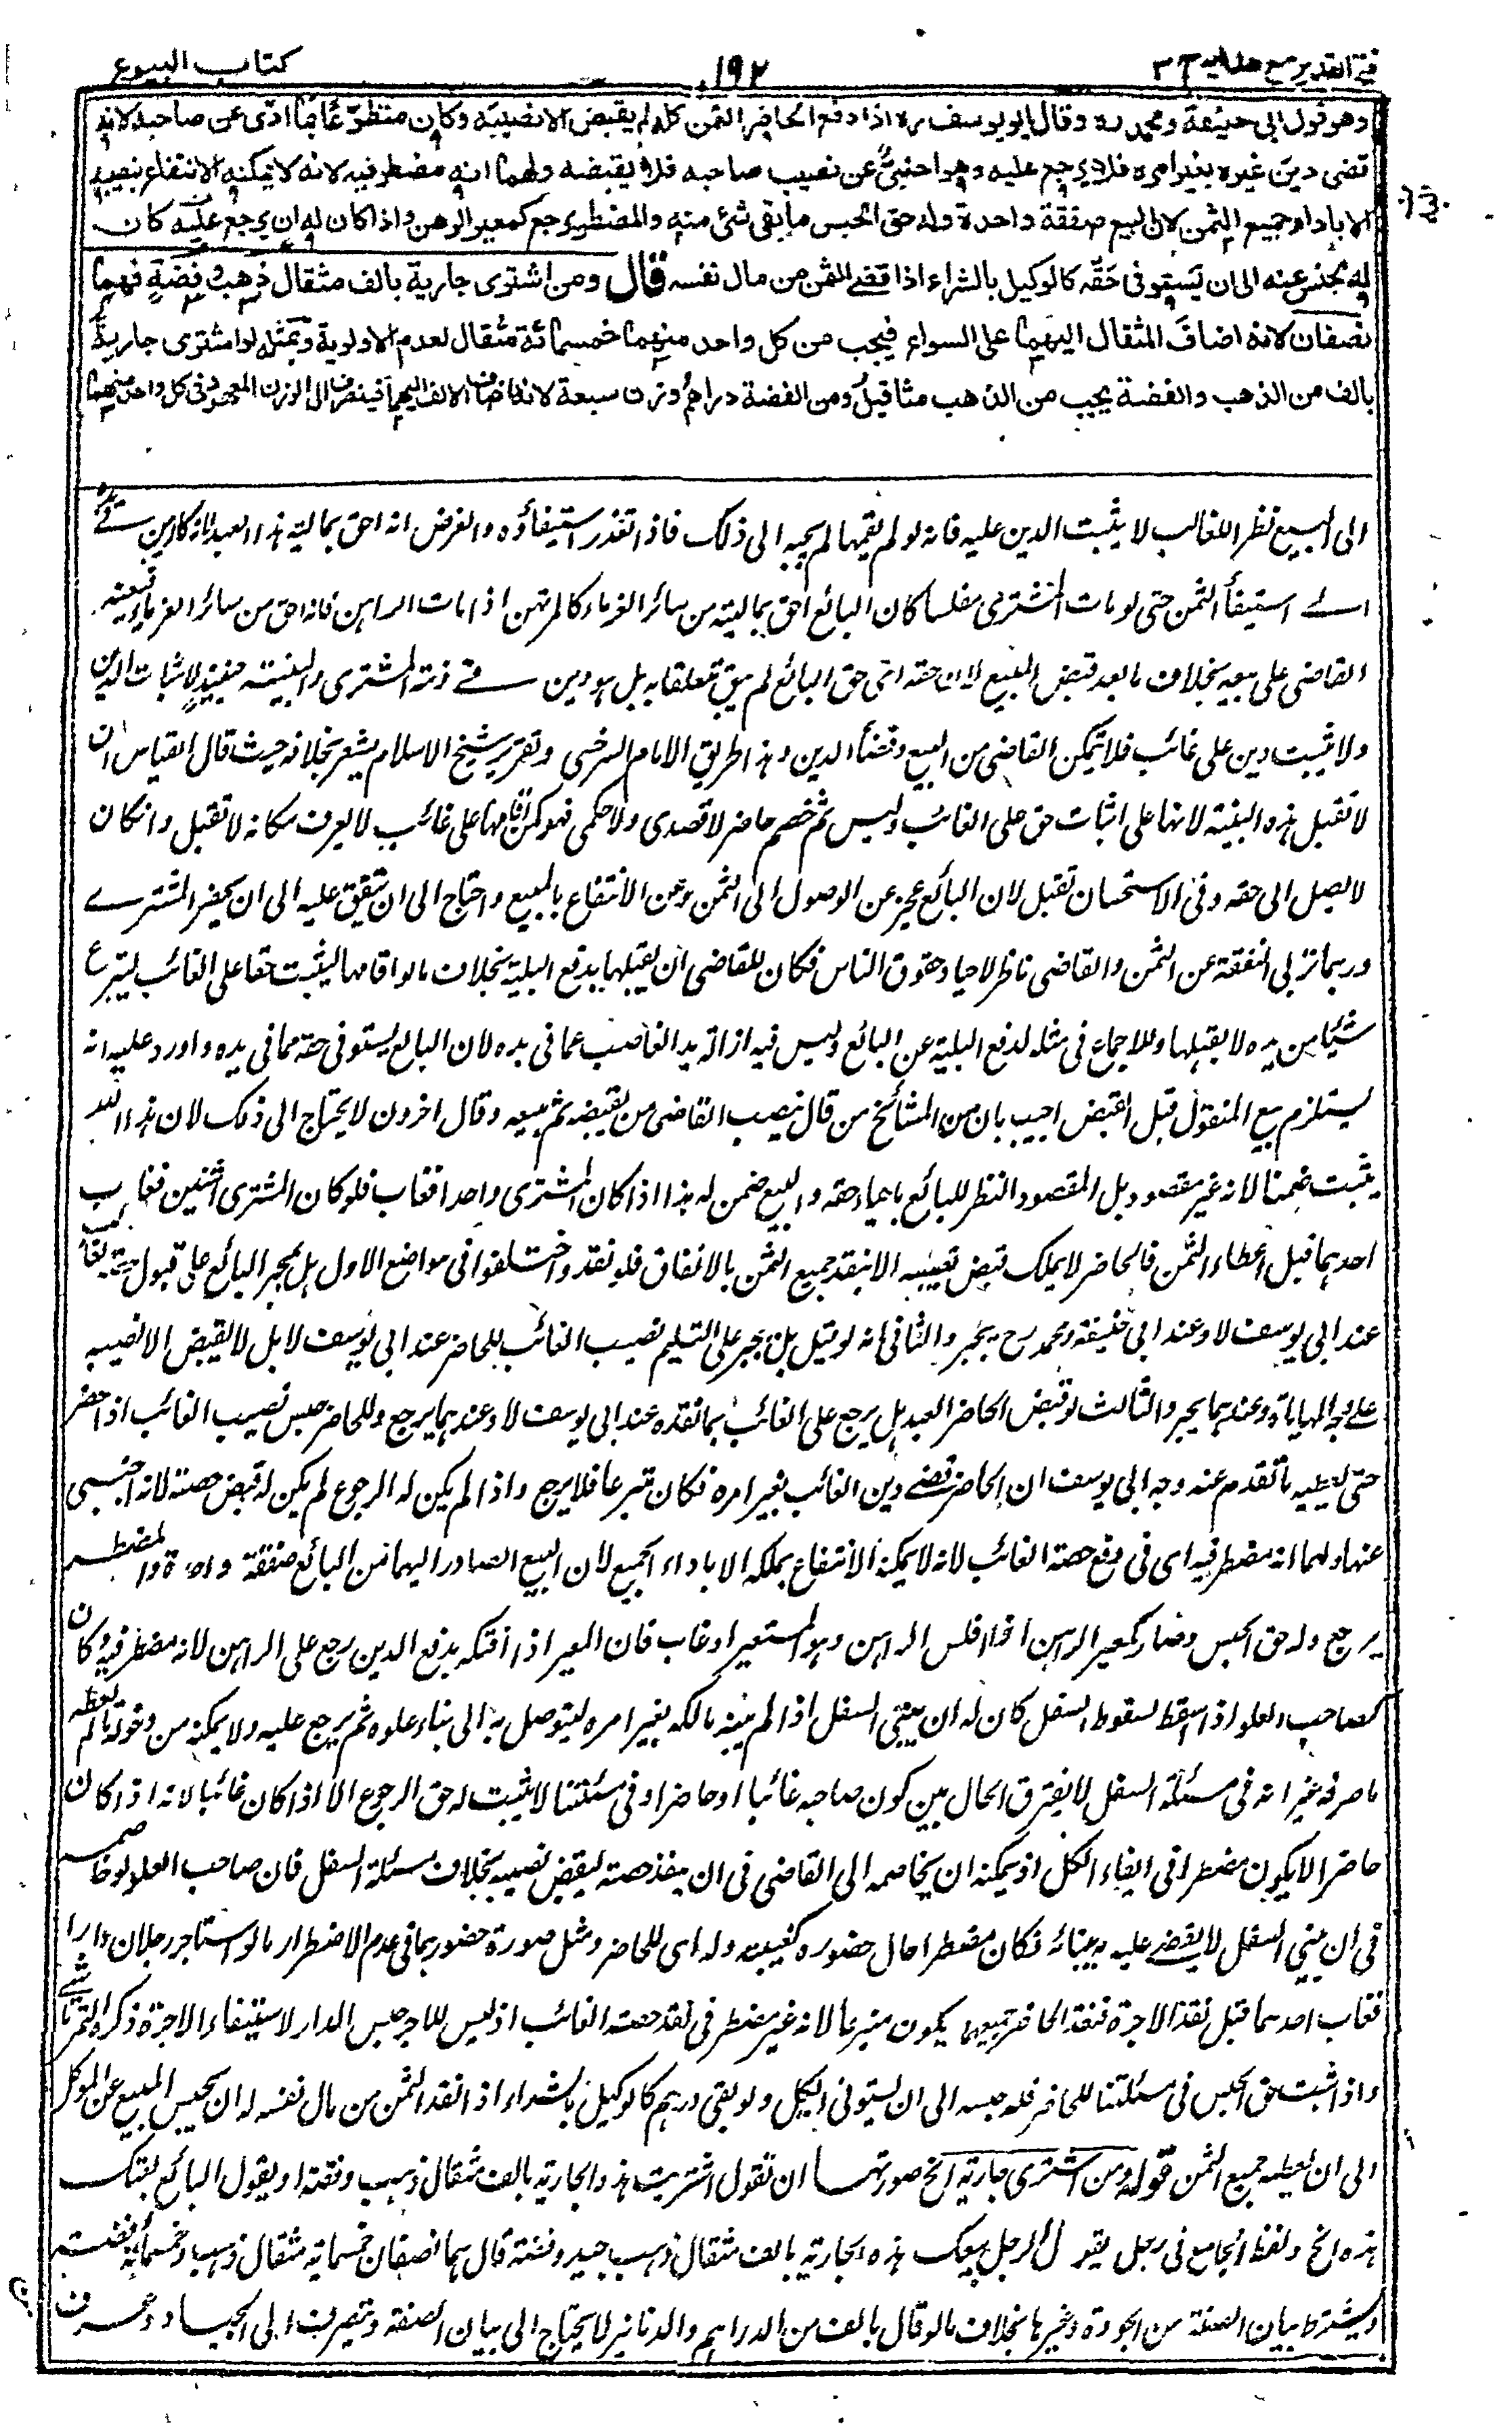 فتح القدير مع هدايه ج ٣
١٩٢
كتاب البيوع
وهو قول ابى حنيفة ومحمد رح وقال ابو يوسف رح اذا دفع الحاضر الثمن كله لم يقبض الا نصيبه وكان متطوعا بما ادى عن صاحبه لانه
قضى دين غيره بغير امره فلا يرجع عليه وهو اجنبى عن نصيب صاحبه فلا يقبضه ولهما انه مضطر فيه لانه لا يمكنه الانتفاع بنصيبه
الا باداء جميع الثمن لان البيع صفقة واحدة وله حق الحبس ما بقى شئ منه والمضطر يرجع كمعير الرهن واذا كان له ان يرجع عليه كان
له الحبس عنه الى ان يستوفى حقه كالوكيل بالشراء اذا قضى الثمن من مال نفسه قال ومن اشترى جارية بالف مثقال ذهب وفضة فهما
نصفان لانه اضاف المثقال اليهما على السواء فيجب من كل واحد منهما خمسمائة مثقال لعدم الاولوية وبمثله لو اشترى جارية
بالف من الذهب والفضة يجب من الذهب مثاقيل ومن الفضة دراهم وزن سبعة لانه اضاف الالف اليهما فينصرف الى الوزن المعهود فى كل واحد منهما
الى المبيع نظرا للغائب لا يثبت الدين عليه فانه لو لم يقمها لم يجبه الى ذلك فاذا تعذر استيفاؤه والفرض انه احق بمالية هذا العبد لانه كالرهن فى يده
الى استيفاء الثمن حتى لو مات المشترى مفلسا كان البائع احق بماليته من سائر الغرماء كالمرتهن اذا مات الراهن فانه احق من سائر الغرماء فيعينه
القاضى على بيعه بخلاف ما بعد قبض المبيع لان حقه اى حق البائع لم يبق متعلقا به بل هو دين فى ذمة المشترى والبينة حينئذ لاثبات الدين
ولا يثبت دين على غائب فلا يتمكن القاضى من البيع وقضاء الدين وهذا طريق الامام السرخسى وتقرير شيخ الاسلام يشعر بخلافه حيث قال القياس ان
لا تقبل هذه البينة لانها على اثبات حق على الغائب وليس ثم خصم حاضر لا قصدى ولا حكمى فهو كمن اقامها على غائب لا يعرف مكانه لا تقبل وان كان
لا يصل الى حقه وفى الاستحسان تقبل لان البائع عجز عن الوصول الى الثمن وعن الانتفاع بالمبيع واحتاج الى ان ينفق عليه الى ان يحضر المشترى
وربما تربى النفقة عن الثمن والقاضى ناظر لاحياء حقوق الناس فكان للقاضى ان يقبلها بدفع البلية بخلاف ما لو اقامها ليثبت حقا على الغائب لينزع
شيئا من يده لا يقبلها وللاجماع فى مثله لدفع البلية عن البائع وليس فيه ازالة يد الغاصب عما فى يده لان البائع يستوفى حقه مما فى يده واورد عليه انه
يستلزم بيع المنقول قبل القبض اجيب بان من المشائخ من قال ينصب القاضى من يقبضه ثم يبيعه وقال اخرون لا يحتاج الى ذلك لان هذا البيع
يثبت ضمنا لانه غير مقصود بل المقصود النظر للبائع باحياء حقه والبيع ضمن له هذا اذا كان المشترى واحدا فغاب فلو كان المشترى اثنين فغاب
احدهما قبل اعطاء الثمن فالحاضر لا يملك قبض نصيبه الا بنقد جميع الثمن بالاتفاق فلو نقده واختلفوا فى مواضع الاول هل يجبر البائع على قبول حصة الغائب
عند ابى يوسف لا وعند ابى حنيفة ومحمد رح يجبر والثانى انه لو قبل هل يجبر على التسليم نصيب الغائب للحاضر عند ابى يوسف لا بل لا يقبض الا نصيبه
على وجه المهاياة وعندهما يجبر والثالث لو قبض الحاضر العبد هل يرجع على الغائب بما نقده عند ابى يوسف لا وعندهما يرجع وللحاضر حبس نصيب الغائب اذا حضر
حتى يعطيه ما تقدم عنه وجه ابى يوسف ان الحاضر قضى دين الغائب بغير امره فكان متبرعا فلا يرجع واذا لم يكن له الرجوع لم يكن له قبض حصته لانه اجنبى
عنها ولهما انه مضطر فيه اى فى دفع حصة الغائب لانه لا يمكنه الانتفاع بملكه الا باداء الجميع لان البيع الصادر اليهما من البائع صفقة واحدة والمضطر
يرجع وله حق الحبس وصار كمعير الراهن اذا افلس الراهن وهو المستعير او غاب فان المعير اذا افتكه بدفع الدين رجع على الراهن لانه مضطر فيه وكان
كصاحب العلو اذا سقط لسقوط السفل كان له ان يبنى السفل اذا لم يبنه مالكه بغير امره ليتوصل به الى بناء علوه ثم يرجع عليه ولا يمكنه من دخوله ما لم يعطه
ما صرفه غير انه فى مسئلة السفل لا يفترق الحال بين كون صاحبه غائبا او حاضرا وفى مسئلتنا لا يثبت له حق الرجوع الا اذا كان غائبا لانه اذا كان
حاضرا لا يكون مضطرا فى ايفاء الكل اذ يمكنه ان يخاصمه الى القاضى فى ان ينقد حصته ليقبض نصيبه بخلاف مسئلة السفل فان صاحب العلو لو خاصمه
فى ان يبنى السفل لا يقضى عليه ببنائه فكان مضطرا حال حضوره كغيبته وله اى للحاضر ومثل صورة حضورهما فى عدم الاضطرار ما لو استاجر رجلان دارا
فغاب احدهما قبل نقد الاجرة فنقد الحاضر جميعها يكون متبرعا لانه غير مضطر فى نقد حصة الغائب اذ ليس للآجر حبس الدار لاستيفاء الاجرة ذكره التمرتاشى
واذا ثبت حق الحبس فى مسئلتنا للحاضر فله حبسه الى ان يستوفى الكل ولو بقى درهم كالوكيل بالشراء اذا نقد الثمن من مال نفسه له ان يحبس المبيع عن الموكل
الى ان يعطيه جميع الثمن قوله ومن اشترى جارية الخ صورتها ان تقول اشتريت هذه الجارية بالف مثقال ذهب وفضة او يقول البائع بعتك
هذه الخ ولفظ الجامع فى رجل يقول لرجل ابيعك هذه الجارية بالف مثقال ذهب جيد وفضة قال هما نصفان خمسمائة مثقال ذهب وخمسمائة فضة
ويشترط بيان الصفة من الجودة وغيرها بخلاف ما لو قال بالف من الدراهم والدنانير لا يحتاج الى بيان الصفة وتنصرف الى الجياد